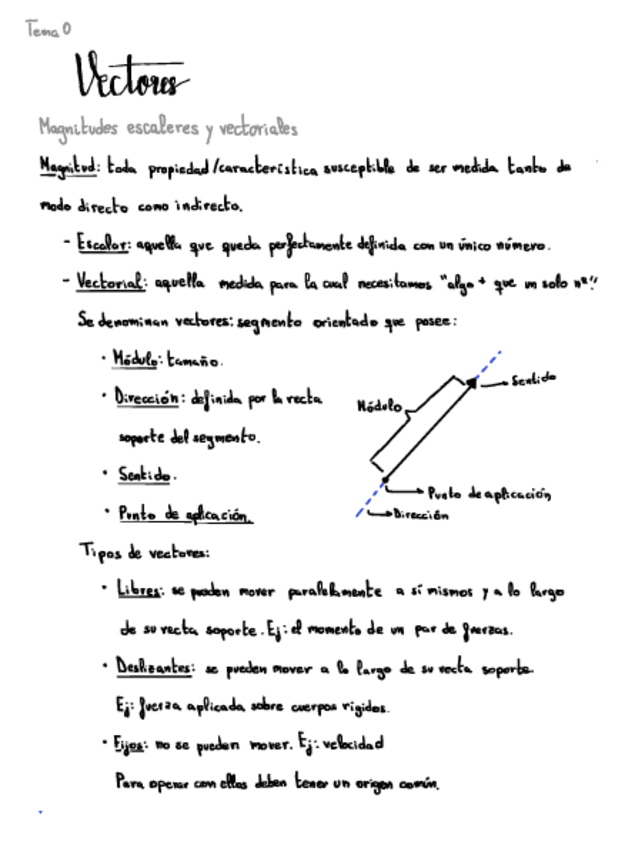 Tema 0
Vectores
Magnitudes escaleres y vectoriales
Magnitud: toda propiedad/característica susceptible de ser medida tanto de
modo directo como indirecto.
- Escalar: aquella que queda perfectamente definida con un único número.
- Vectorial: aquella medida para la cual necesitamos "algo + que un solo nº"
Se denominan vectores: segmento orientado que posee:
· Módulo: tamaño.
· Dirección: definida por la recta
soporte del segmento.
· Sentido.
· Punto de aplicación.
Sentido
Módulo
Punto de aplicación
Dirección
Tipos de vectores:
· Libres: se pueden mover paralelamente a sí mismos y a lo largo
de su recta soporte. Ej: el momento de un par de fuerzas.
· Deslizantes: se pueden mover a lo largo de su recta soporte.
Ej: fuerza aplicada sobre cuerpos rígidos.
· Fijos: no se pueden mover. Ej: velocidad
Para operar con ellos deben tener un origen común.